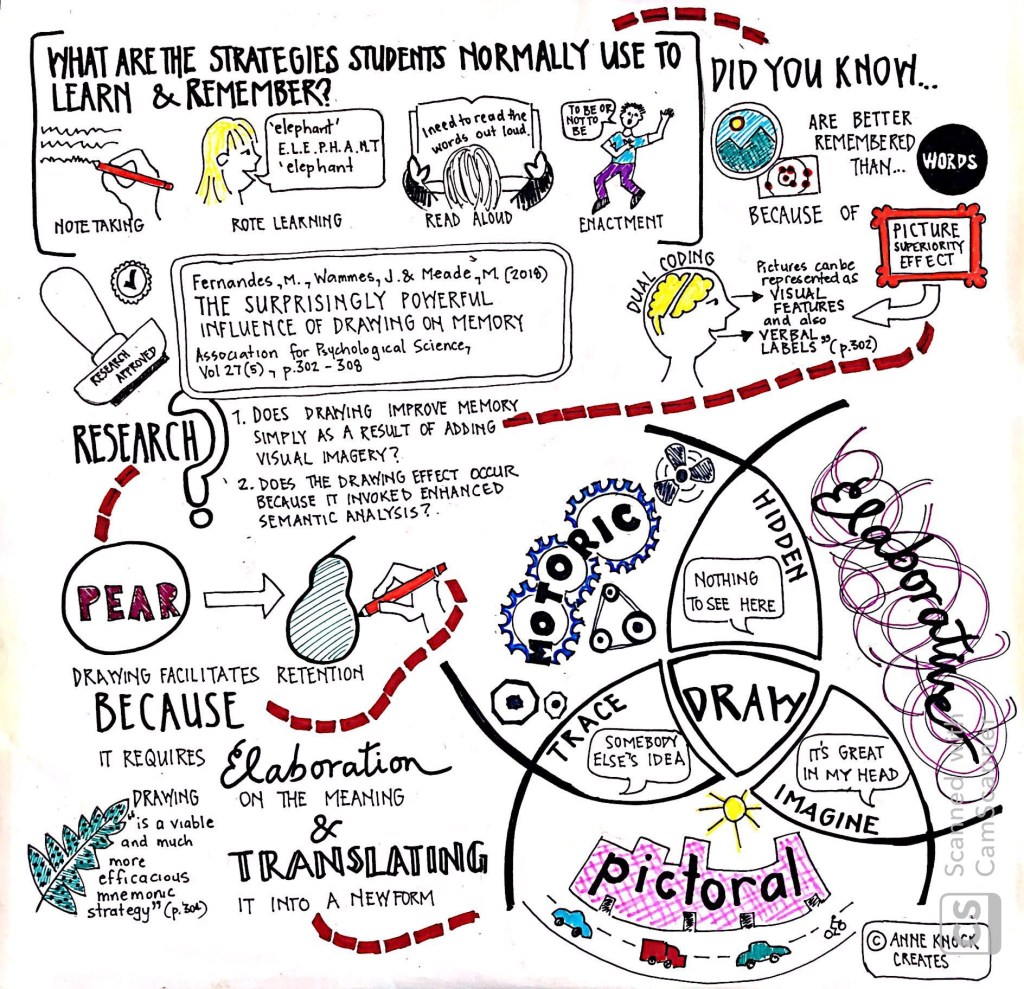 WHAT ARE THE STRATEGIES STUDENTS NORMALLY USE TO
LEARN & REMEMBER?
NOTE TAKING
'elephant'
E.L.E.P.H.A.N.T
'elephant
ROTE LEARNING
I need to read the
words out loud.
READ ALOUD
TO BE OR
NOT TO
BE
ENACTMENT
DID YOU KNOW...
ARE BETTER
REMEMBERED
THAN...
WORDS
BECAUSE OF
PICTURE
SUPERIORITY
EFFECT
DUAL CODING
Pictures can be
represented as
VISUAL
FEATURES
and also
VERBAL
LABELS" (p.302)
RESEARCH
APPROVED
Fernandes, M., Wammes, J. & Meade, M. (2018)
THE SURPRISINGLY POWERFUL
INFLUENCE OF DRAWING ON MEMORY
Association for Psychological Science,
Vol 27(5), p.302 - 308
RESEARCH?
1. DOES DRAWING IMPROVE MEMORY
SIMPLY AS A RESULT OF ADDING
VISUAL IMAGERY?
2. DOES THE DRAWING EFFECT OCCUR
BECAUSE IT INVOKED ENHANCED
SEMANTIC ANALYSIS?
PEAR
DRAWING FACILITATES RETENTION
BECAUSE
IT REQUIRES Elaboration
ON THE MEANING
&
TRANSLATING
IT INTO A NEW FORM
DRAWING
"is a viable
and much
more
efficacious
mnemonic
strategy" (p.302)
MOTORIC
Elaborative
HIDDEN
NOTHING
TO SEE HERE
TRACE
SOMEBODY
ELSE'S IDEA
DRAW
IT'S GREAT
IN MY HEAD
IMAGINE
Pictoral
© ANNE KNOCK
CREATES
CS
Scanned with
CamScanner